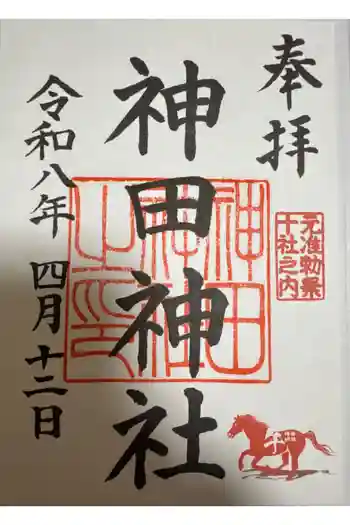 奉拝
元准勅祭
十社之内
神田神社
神田
神社
之印
令和八年 四月 十二日